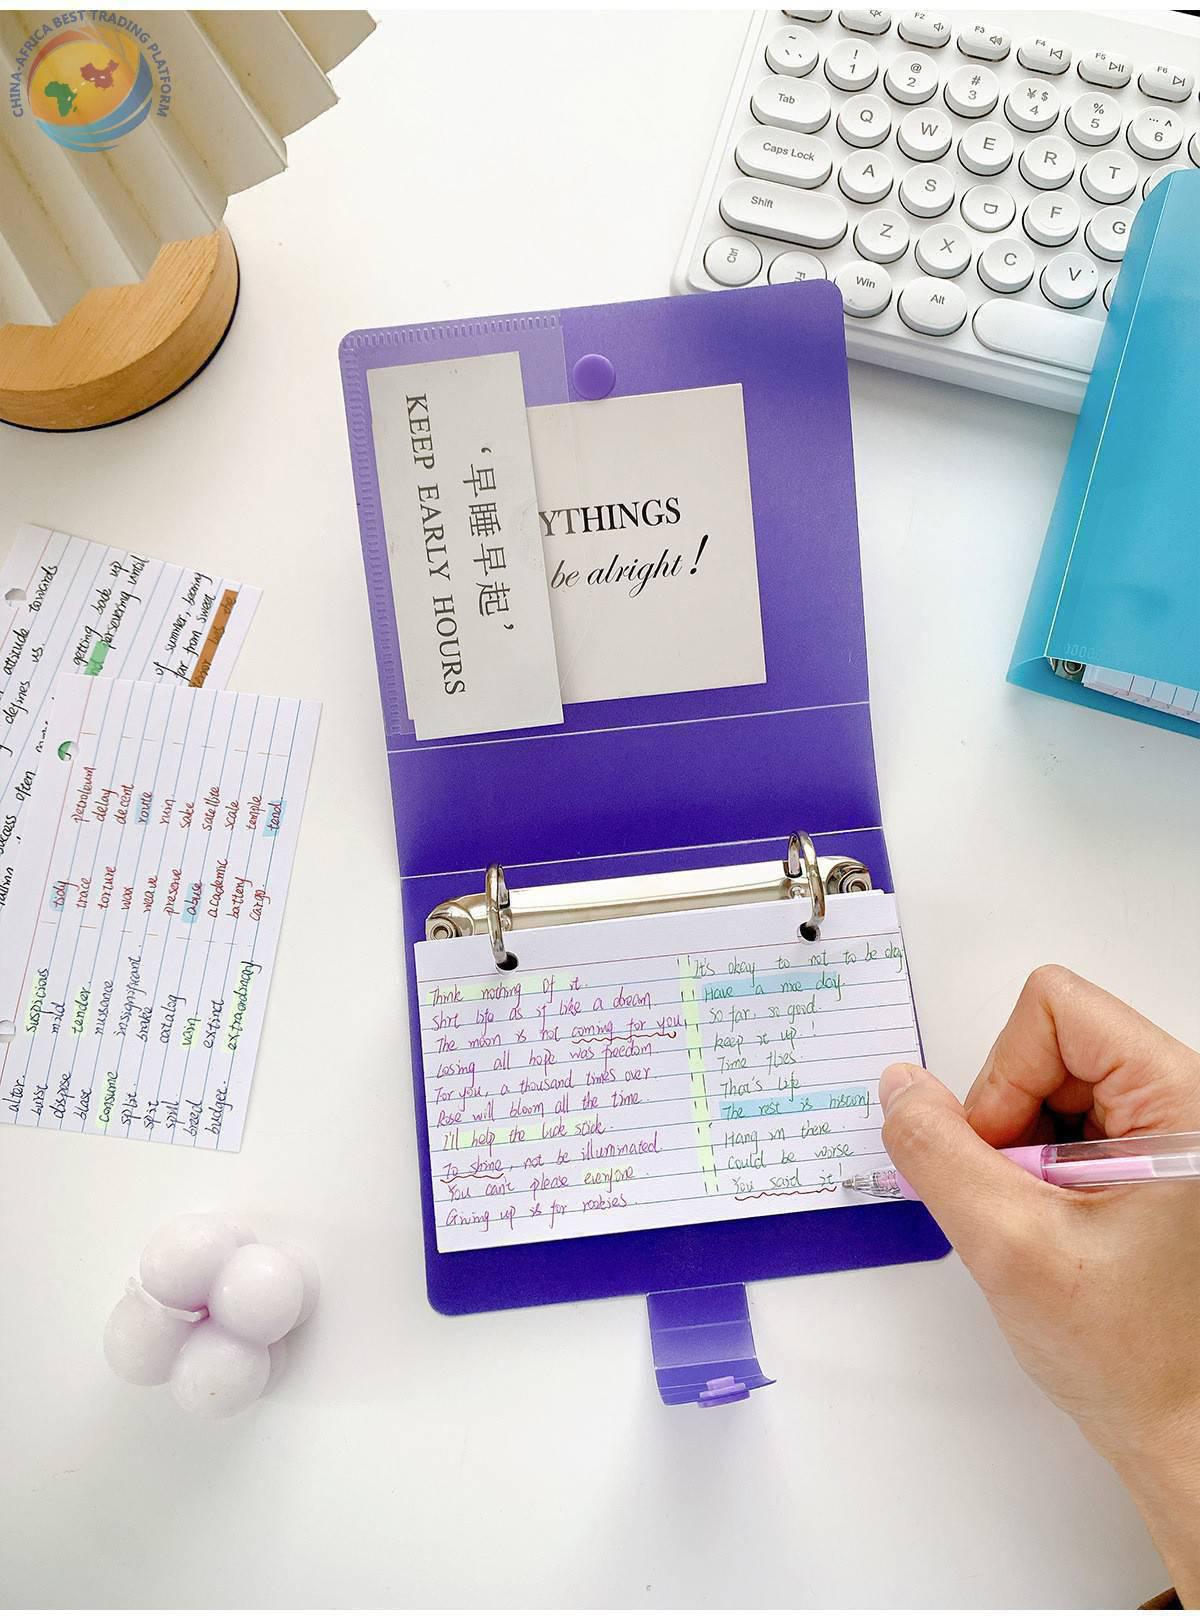 CHINA-AFRICA BEST TRADING PLATFORM
F2
F3
F4
F5
F6
~
!
1
@
2
#
3
¥ $
4
%
5
... ^
6
Tab
Q
W
E
R
T
Caps Lock
A
S
D
F
G
Shift
Z
X
C
V
Ctrl
Fn
Win
Alt
KEEP EARLY HOURS
‘早睡早起’
YTHINGS
be alright!
attitude towards
defines us.
success often
getting back up
persevering until
of summer, bearing
far from sweet
petroleum
delay
decent
route
ruin
sake
satellite
scale
temple
tend
tidy
trace
torture
wax
weave
preserve
abuse
academic
battery
cargo.
suspicious
mild
tender.
nuisance
insignificant
brake
catalog
vain.
extinct
extraordinary.
alter.
burst
dispose
blast
consume
split.
spit
spill.
breed
budget.
Think nothing Of it.
Shit life as if like a dream
The moon is not coming for you
Losing all hope was freedom.
For you, a thousand times over.
Rose will bloom all the time.
I'll help the luck stick.
To shine, not be illuminated.
You can't please everyone.
Giving up is for rookies.
It's okay to not to be okay
Have a nice day.
So far, so good.
keep it up!
Time flies.
That's life
The rest is history
Hang in there.
Could be worse.
You said it!